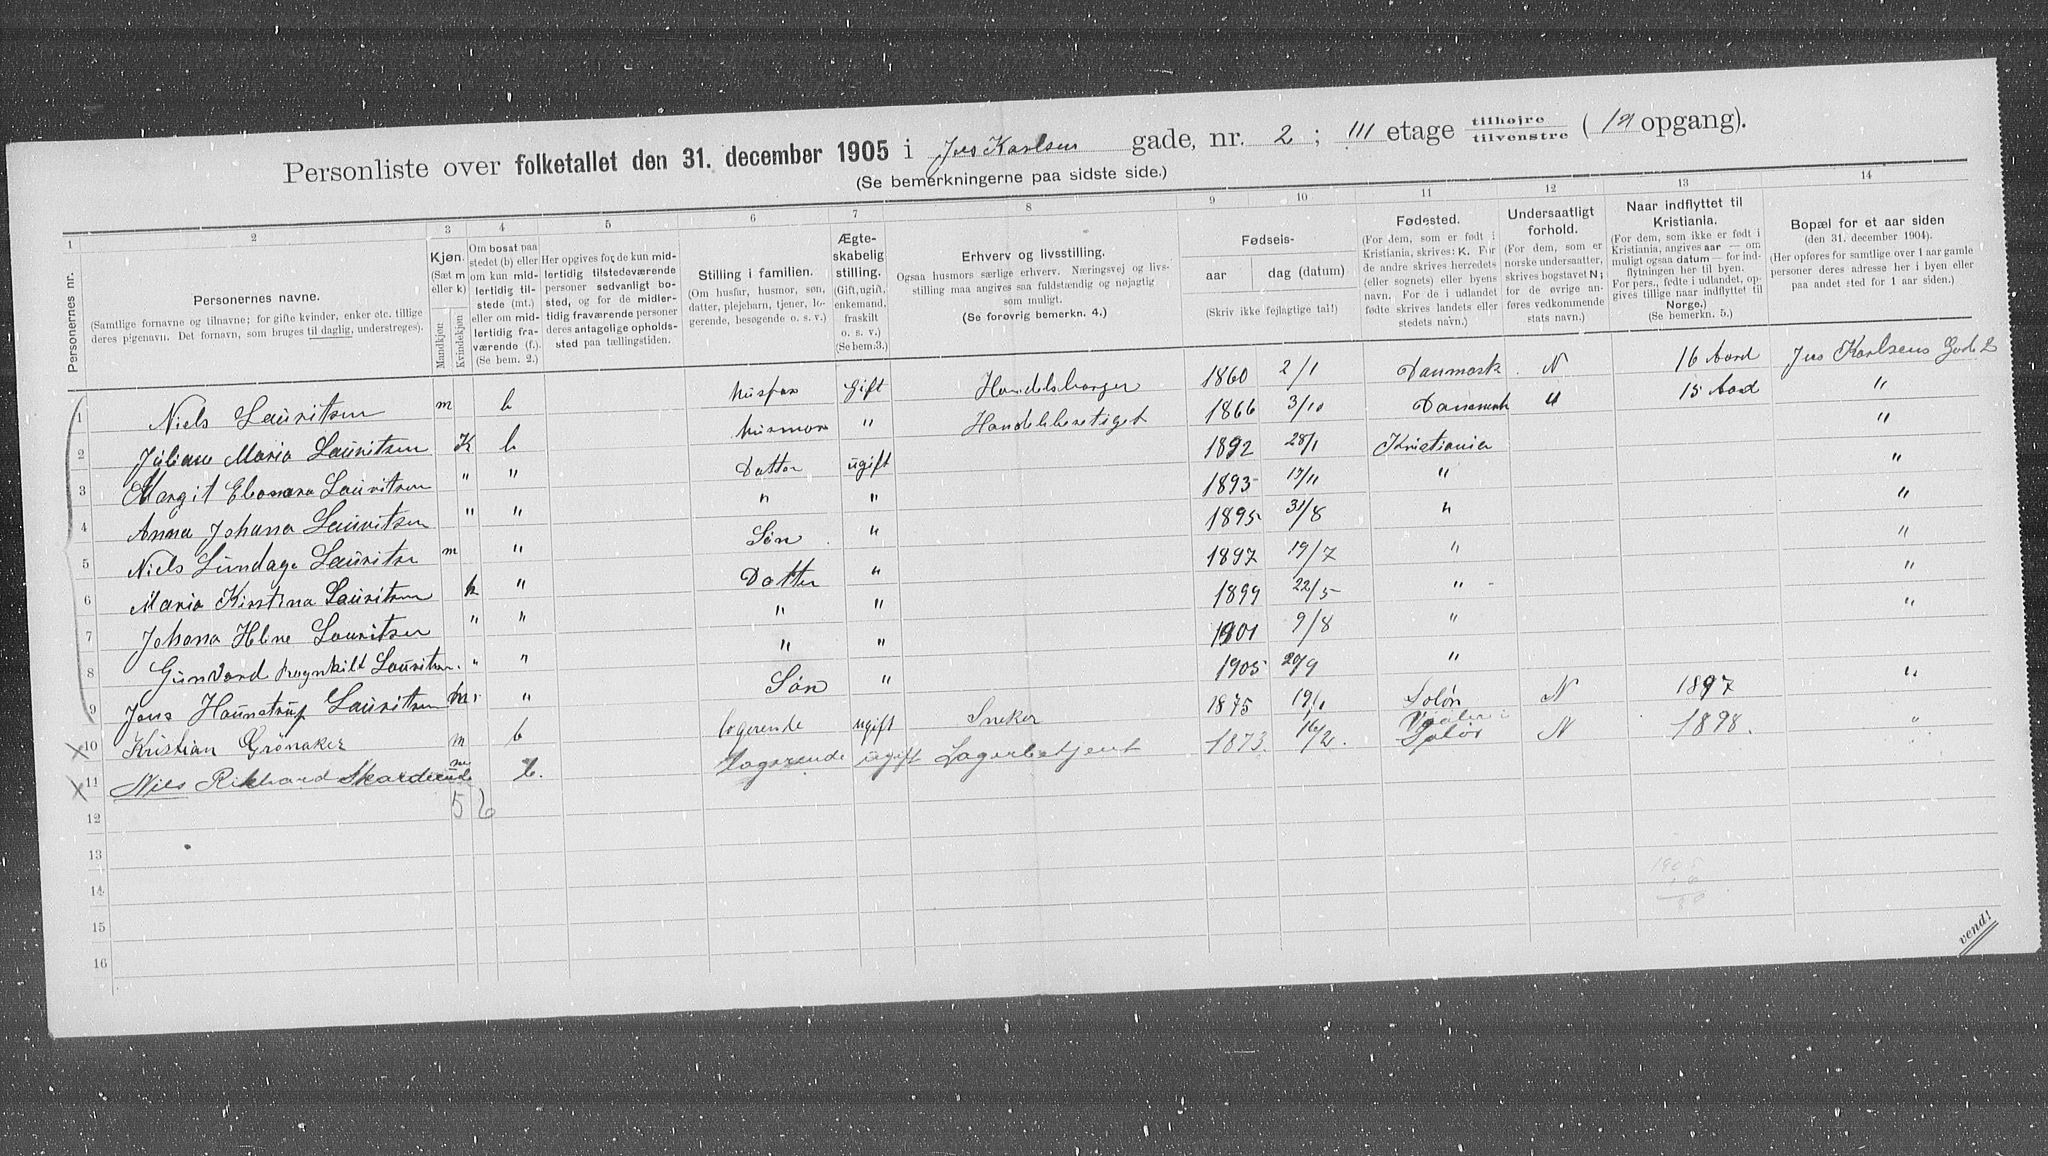 Personliste over folketallet den 31. december 1905 i Jens Karlsens gade, nr. 2; III etage tilhøjre tilvenstre ( opgang).
(Se bemerkningerne paa sidste side.)
1 2 3 4 5 6 7 8 9 10 11 12 13 14
Personernes nr.
Personernes navne.
(Samtlige fornavne og tilnavne; for gifte kvinder, enker etc. tillige
deres pigenavn. Det fornavn, som bruges til daglig, understreges).
Kjøn.
(Sæt m
eller k)
Mandkjøn
Kvindekjøn
Om bosat paa
stedet (b) eller
om kun mid-
lertidig til-
stede (mt.)
eller om mid-
lertidig fra-
værende (f.).
(Se bem. 2.)
Her opgives for de kun mid-
lertidig tilstedeværende
personer sedvanligt bo-
sted, og for de midler-
tidig fraværende personer
deres antagelige opholds-
sted paa tællingstiden.
Stilling i familien.
(Om husfar, husmor, søn,
datter, plejebarn, tjener, lo-
gerende, besøgende o. s. v.)
Ægte-
skabelig
stilling.
(Gift, ugift,
enkemand,
fraskilt
o. s. v.)
(Se bem.3.)
Erhverv og livsstilling.
Ogsaa husmors særlige erhverv. Næringsvej og livs-
stilling maa angives saa fuldstændig og nøjagtig
som muligt.
(Se forøvrig bemerkn. 4.)
Fødsels-
aar dag (datum)
(Skriv ikke fejlagtige tal!)
Fødested.
(For dem, som er født i
Kristiania, skrives: K. For
de andre skrives herredets
(eller sognets) eller byens
navn. For de i udlandet
fødte skrives landets eller
stedets navn.)
Undersaatligt
forhold.
(For dem, som er
norske undersaatter,
skrives bogstavet N;
for de øvrige an-
føres vedkommende
stats navn.)
Naar indflyttet til
Kristiania.
(For dem, som ikke er født i
Kristiania, angives aar — om
muligt ogsaa datum — for ind-
flytningen her til byen.
For pers., fødte i udlandet, op-
gives tillige naar indflyttet til
Norge.)
(Se bemerkn. 5.)
Bopæl for et aar siden
(den 31. december 1904).
(Her opføres for samtlige over 1 aar gamle
personer deres adresse her i byen eller
paa andet sted for 1 aar siden.)
1 Niels Lauritsen m b husfar Gift Handelsborger 1860 2/1 Danmark N 16 Aard Jens Karlsens Gade 2
2 Juliane Maria Lauritsen K b husmor " 1866 3/10 Danmark " 15 Aard "
3 Margit Eleonora Lauritsen " " Datter ugift 1892 28/1 Kristiania "
4 Anna Johana Lauritsen " " " " 1893 17/11 " "
5 Niels Lundage Lauritsen m " Søn " 1895 31/8 " "
6 Maria Kirstina Lauritsen k " Datter " 1897 19/7 " "
7 Johana Heline Lauritsen " " " " 1899 22/5 " "
8 Gunvord Ragnhilt Lauritsen " " " " 1901 9/8 " "
9 Jens Haunstrup Lauritsen m " Søn " 1905 20/9 "
10 Kristian Grönaker m b logerende ugift Sneker 1875 19/1 Solør N 1897 "
11 Niels Rikhard m b. Logerende ugift Lagerbetjent 1873. 16/2. Vaaler i Solør N 1898. "
12 5 6
13
14
15
16
vend!